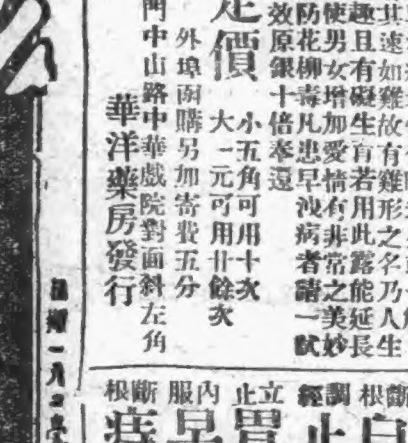 其速如雞故有雞形之名乃人生
趣且有礙生育若用此露能延長
使男女增加愛情有非常之美妙
防花柳毒凡患早洩病者請一試
效原銀十倍奉還
定價
小五角可用十次
大一元可用廿餘次
外埠函購另加寄費五分
門中山路中華戲院對面斜左角
華洋藥房發行
根斷
調經
立止
內服
根斷